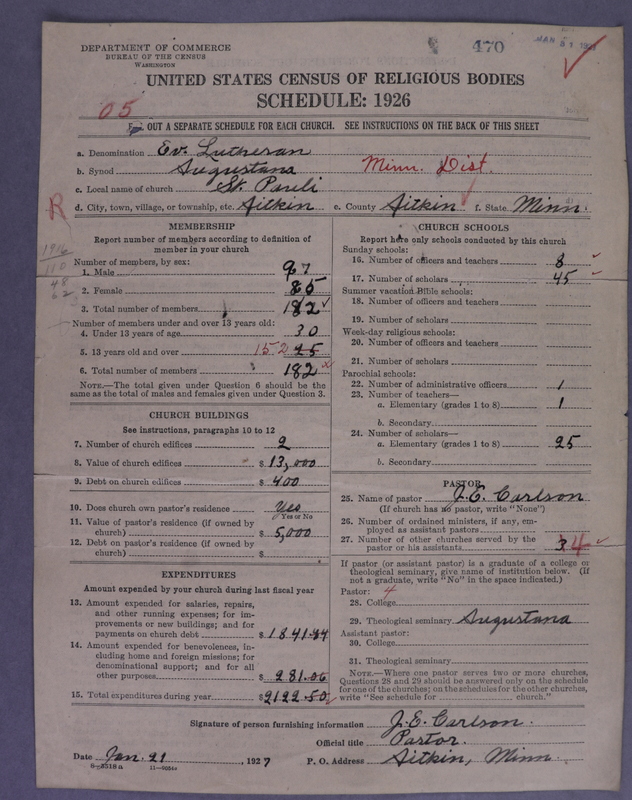 470
JAN 31 1927
DEPARTMENT OF COMMERCE
BUREAU OF THE CENSUS
WASHINGTON
UNITED STATES CENSUS OF RELIGIOUS BODIES
SCHEDULE: 1926
05
OUT A SEPARATE SCHEDULE FOR EACH CHURCH. SEE INSTRUCTIONS ON THE BACK OF THIS SHEET
a. Denomination Ev. Lutheran
b. Synod Augustana Minn. Dist.
c. Local name of church St. Pauli
R d. City, town, village, or township, etc. Aitkin e. County Aitkin f. State Minn.
MEMBERSHIP
Report number of members according to definition of
member in your church
1916
110
48
62
Number of members, by sex:
1. Male 97
2. Female 85
3. Total number of members 182
Number of members under and over 13 years old:
4. Under 13 years of age 30
5. 13 years old and over 152
6. Total number of members 182
NOTE.—The total given under Question 6 should be the
same as the total of males and females given under Question 3.
CHURCH BUILDINGS
See instructions, paragraphs 10 to 12
7. Number of church edifices 2
8. Value of church edifices $ 13,000
9. Debt on church edifices $ 400
10. Does church own pastor's residence? Yes
Yes or No
11. Value of pastor's residence (if owned by
church) $ 5,000
12. Debt on pastor's residence (if owned by
church) $
EXPENDITURES
Amount expended by your church during last fiscal year
13. Amount expended for salaries, repairs,
and other running expenses; for im-
provements or new buildings; and for
payments on church debt $ 1841.44
14. Amount expended for benevolences, in-
cluding home and foreign missions; for
denominational support; and for all
other purposes $ 281.06
15. Total expenditures during year $ 2122.50
CHURCH SCHOOLS
Report here only schools conducted by this church
Sunday schools:
16. Number of officers and teachers 8
17. Number of scholars 45
Summer vacation Bible schools:
18. Number of officers and teachers
19. Number of scholars
Week-day religious schools:
20. Number of officers and teachers
21. Number of scholars
Parochial schools:
22. Number of administrative officers 1
23. Number of teachers—
a. Elementary (grades 1 to 8) 1
b. Secondary
24. Number of scholars—
a. Elementary (grades 1 to 8) 25
b. Secondary
PASTOR
25. Name of pastor J. E. Carlson
(If church has no pastor, write "None")
26. Number of ordained ministers, if any, em-
ployed as assistant pastors
27. Number of other churches served by the
pastor or his assistants 3 4
If pastor (or assistant pastor) is a graduate of a college or
theological seminary, give name of institution below. (If
not a graduate, write "No" in the space indicated.)
Pastor: 4
28. College
29. Theological seminary Augustana
Assistant pastor:
30. College
31. Theological seminary
NOTE.—Where one pastor serves two or more churches,
Questions 28 and 29 should be answered only on the schedule
for one of the churches; on the schedules for the other churches,
write "See schedule for church."
Signature of person furnishing information J. E. Carlson.
Official title Pastor.
Date Jan. 21, 1927 P. O. Address Aitkin, Minn.